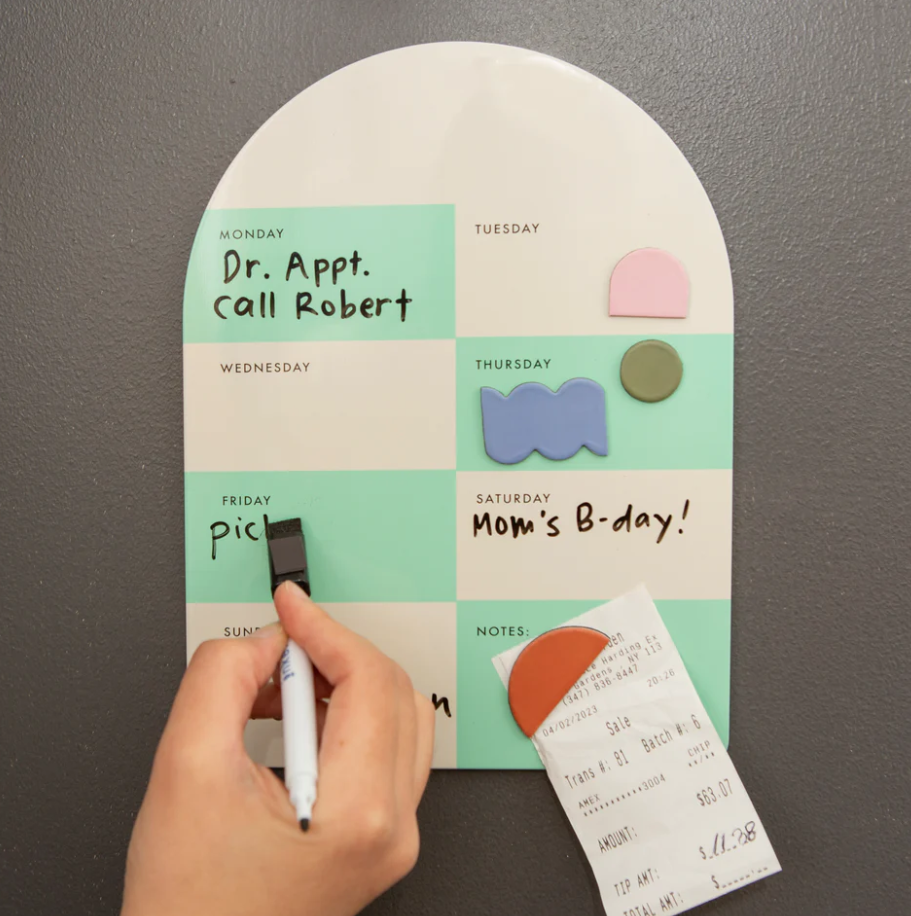 MONDAY
Dr. Appt.
call Robert
TUESDAY
WEDNESDAY
THURSDAY
FRIDAY
SATURDAY
Mom's B-day!
NOTES:
Harding Ex
Gardens , NY 113
(347) 836-8447
04/02/2023
20:26
Sale
Trans #: 81 Batch #: 6
AMEX
CHIP
************3004
**/**
AMOUNT: $63.07
TIP AMT: $ 11.38
TOTAL AMT: $